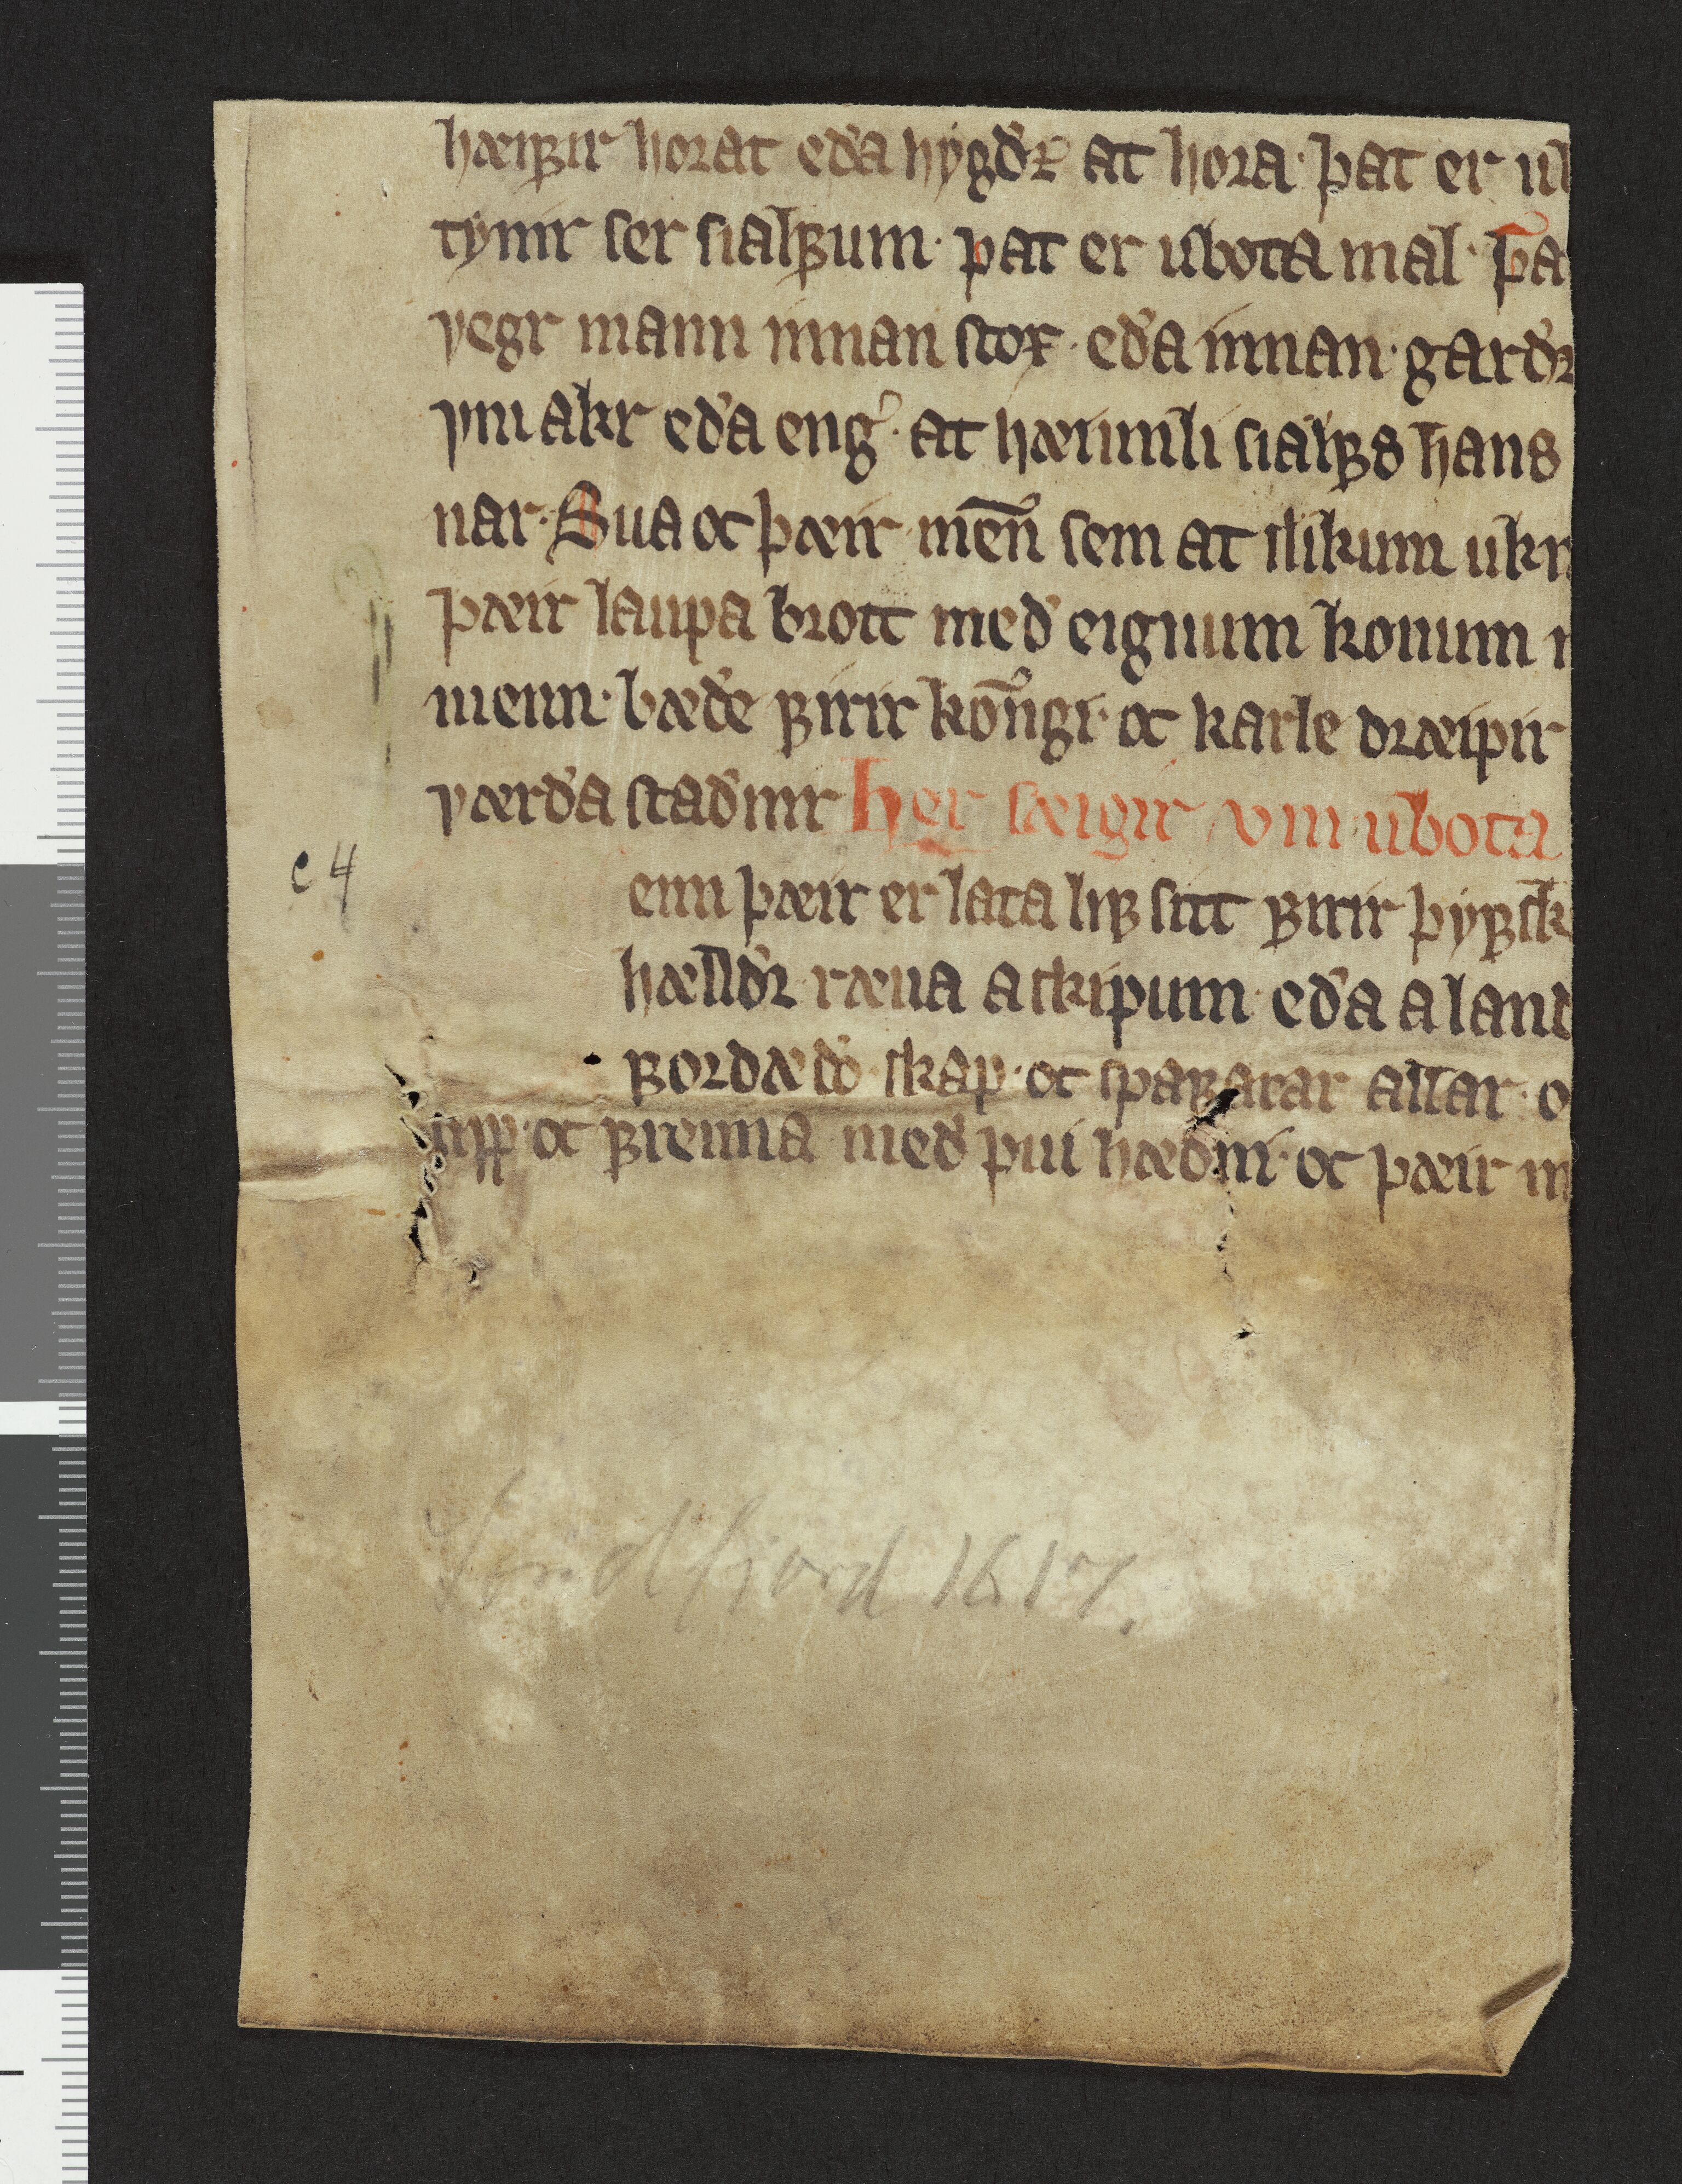 hæıꝼır horat eða hygðꝛ at hora· þat er ub
tynir ser sialꝼum· þat er ubota mal· þa
vegr mann innan stox· eða innan· garðz
vm akr eða eng· at hæimili sialꝼs hans
nar· Sua oc þæir men̄ sem at slikum ukr
þæir laupa brott með eignum konum
menn· bæðe ꝼirir kon̄gi· oc karle dræpir
værða staðnir her sæigir vm ubota
enn þæir er lata liꝼ sitt ꝼirir þyꝼsk
hællðꝛ ræna a skipum· eða a land
ꝼordæðo skap· oc spaꝼarar allar· o
upp· oc ꝼremia með þui hæðni· oc þæir m
c 4
Søndfjord 1617.